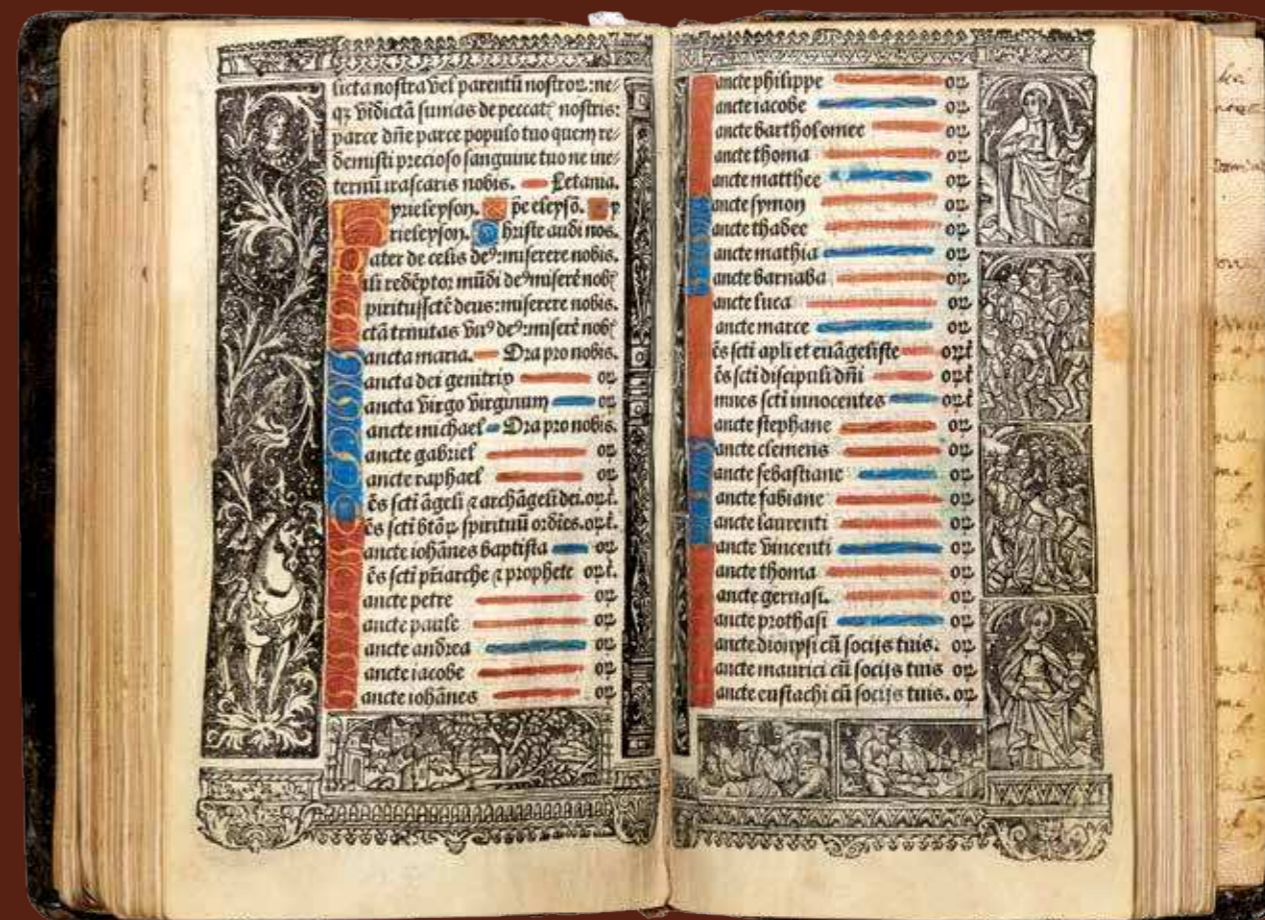 licta nostra vel parentū nostroꝝ: ne⸗
qꝫ vīdictā sumas de peccatꝭ nostris:
parce dn̄e parce populo tuo quem re⸗
demisti precioso sanguine tuo ne ine⸗
ternū irascaris nobis. Letania.
yrieleyson. p̄e eleysō.
rieleyson. hriste audi nos.
ater de celis deꝰ: miserere nobis.
ili redēptor mūdi deꝰ miserē nobꝭ
piritussctē deus: miserere nobis.
ctā trinitas vnꝰ deꝰ: miserē nobꝭ
ancta maria. Ora pro nobis.
ancta dei genitrix oꝝ
ancta virgo virginum oꝝ
ancte michael Ora pro nobis.
ancte gabriel oꝝ
ancte raphael oꝝ
ēs scti āgeli ⁊ archāgeli dei. oꝝt̄.
ēs scti btōꝝ spirituū ordīes. oꝝt̄.
ancte iohānes baptista oꝝ
ēs scti pr̄iarche ⁊ prophete oꝝt̄.
ancte petre oꝝ
ancte paule oꝝ
ancte andrea oꝝ
ancte iacobe oꝝ
ancte iohānes oꝝ
ancte philippe oꝝ
ancte iacobe oꝝ
ancte bartholomee oꝝ
ancte thoma oꝝ
ancte matthee oꝝ
ancte symon oꝝ
ancte thadee oꝝ
ancte mathia oꝝ
ancte barnaba oꝝ
ancte luca oꝝ
ancte marce oꝝ
ēs scti apli et euāgeliste oꝝt̄
ēs scti discipuli dn̄i oꝝt̄
mnes scti innocentes oꝝt̄
ancte stephane oꝝ
ancte clemens oꝝ
ancte sebastiane oꝝ
ancte fabiane oꝝ
ancte laurenti oꝝ
ancte vincenti oꝝ
ancte thoma oꝝ
ancte geruasi. oꝝ
ancte prothasi oꝝ
ancte dionysi cū socijs tuis. oꝝ
ancte maurici cū socijs tuis oꝝ
ancte eustachi cū socijs tuis. oꝝ